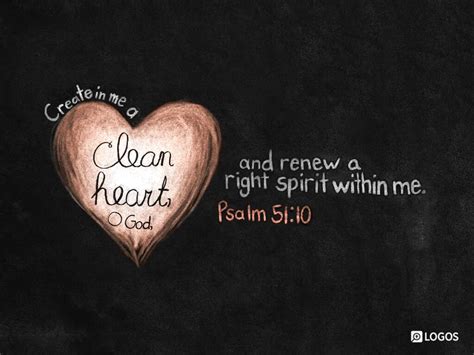 Create in me a
clean
heart,
O God,
and renew a
right spirit within me.
Psalm 51:10
LOGOS